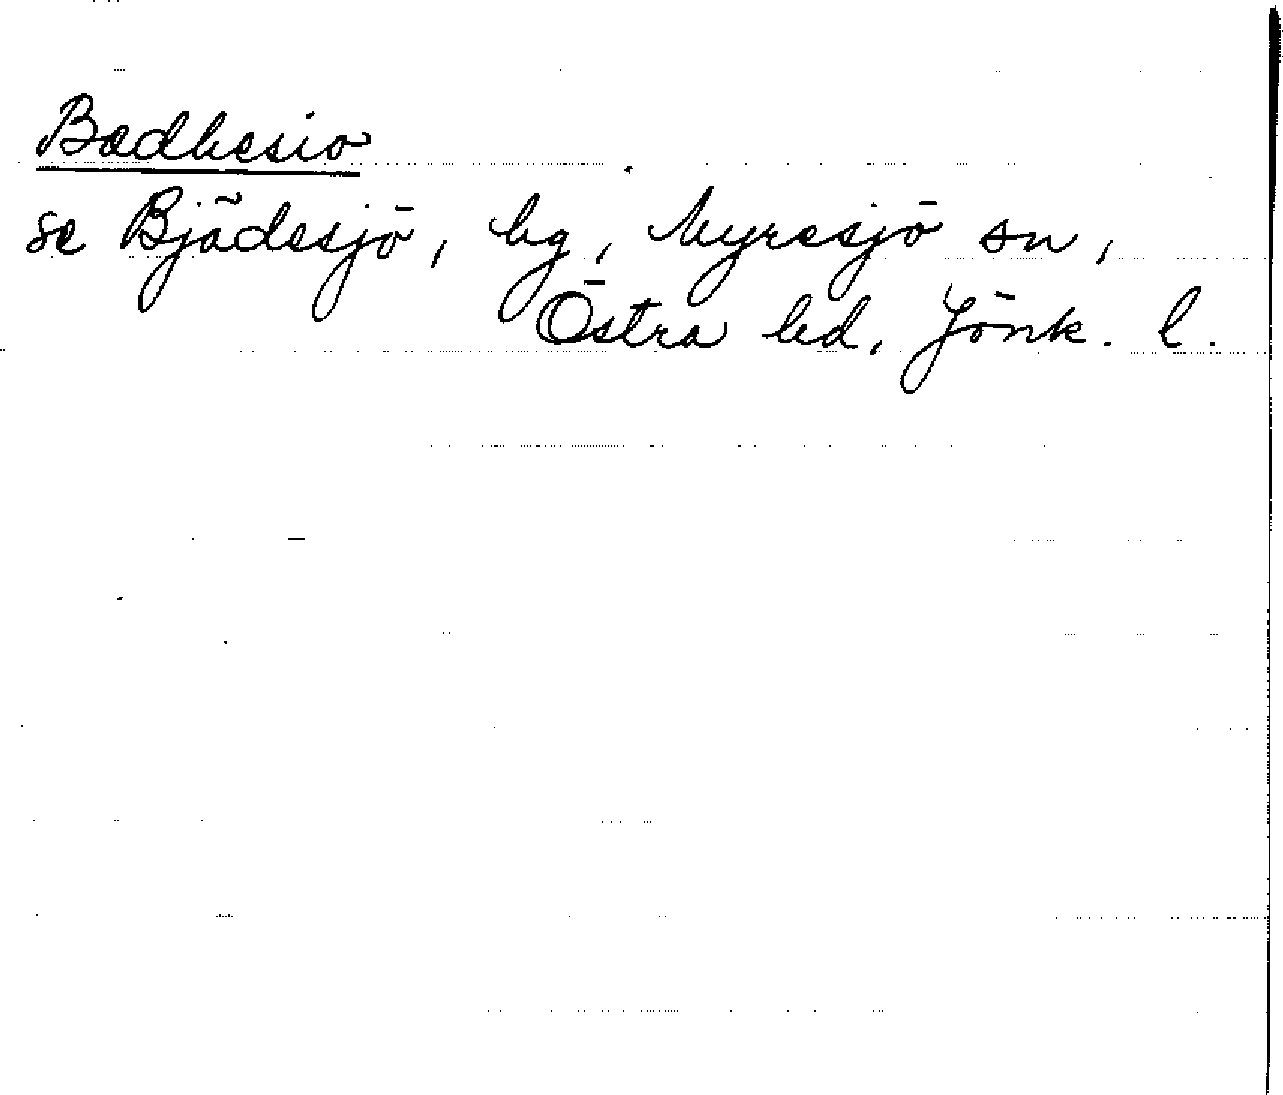 Bædhesio
se Bjädesjö, bg, Myresjö sn,
Östra hd, Jönk. l.